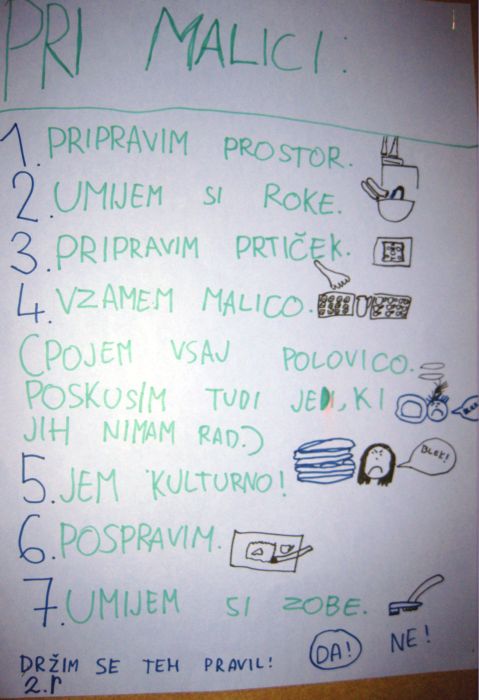 PRI MALICI:
1. PRIPRAVIM PROSTOR.
2. UMIJEM SI ROKE.
3. PRIPRAVIM PRTIČEK.
4. VZAMEM MALICO.
(POJEM VSAJ POLOVICO.
POSKUSIM TUDI JEDI, KI
JIH NIMAM RAD.)
BLEK!
5. JEM KULTURNO!
6. POSPRAVIM.
7. UMIJEM SI ZOBE.
DRŽIM SE TEH PRAVIL! DA! NE!
2. r